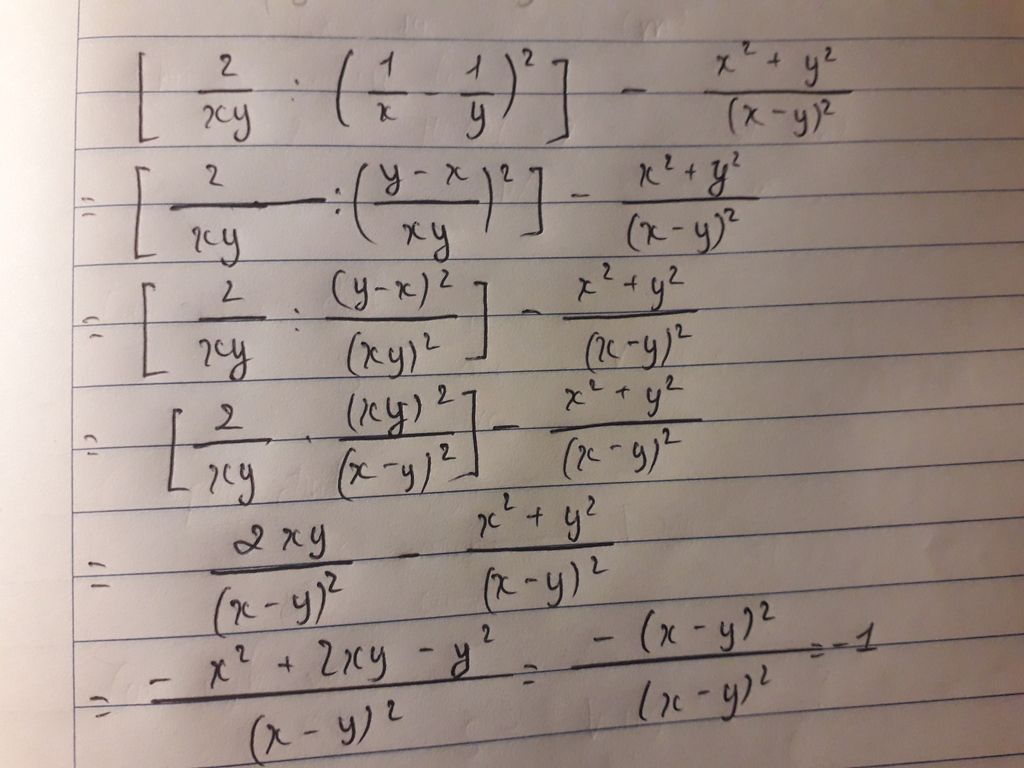 [ 2/xy : (1/x - 1/y)² ] - (x² + y²)/(x - y)²
= [ 2/xy : ((y - x)/xy)² ] - (x² + y²)/(x - y)²
= [ 2/xy : (y - x)²/(xy)² ] - (x² + y²)/(x - y)²
= [ 2/xy · (xy)²/(x - y)² ] - (x² + y²)/(x - y)²
= 2xy/(x - y)² - (x² + y²)/(x - y)²
= (- x² + 2xy - y²)/(x - y)² = - (x - y)²/(x - y)² = -1